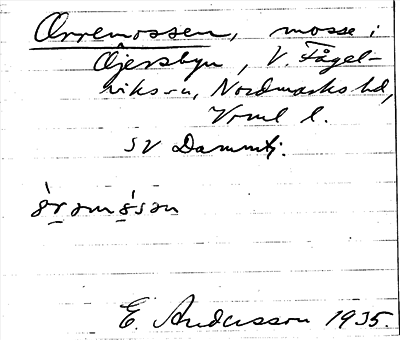 Orremossen, mosse i
Öjersbyn, V. Fågel-
viks sn, Nordmarks hd,
Vrml l.
SV Dammtj.
E. Andersson 1935.